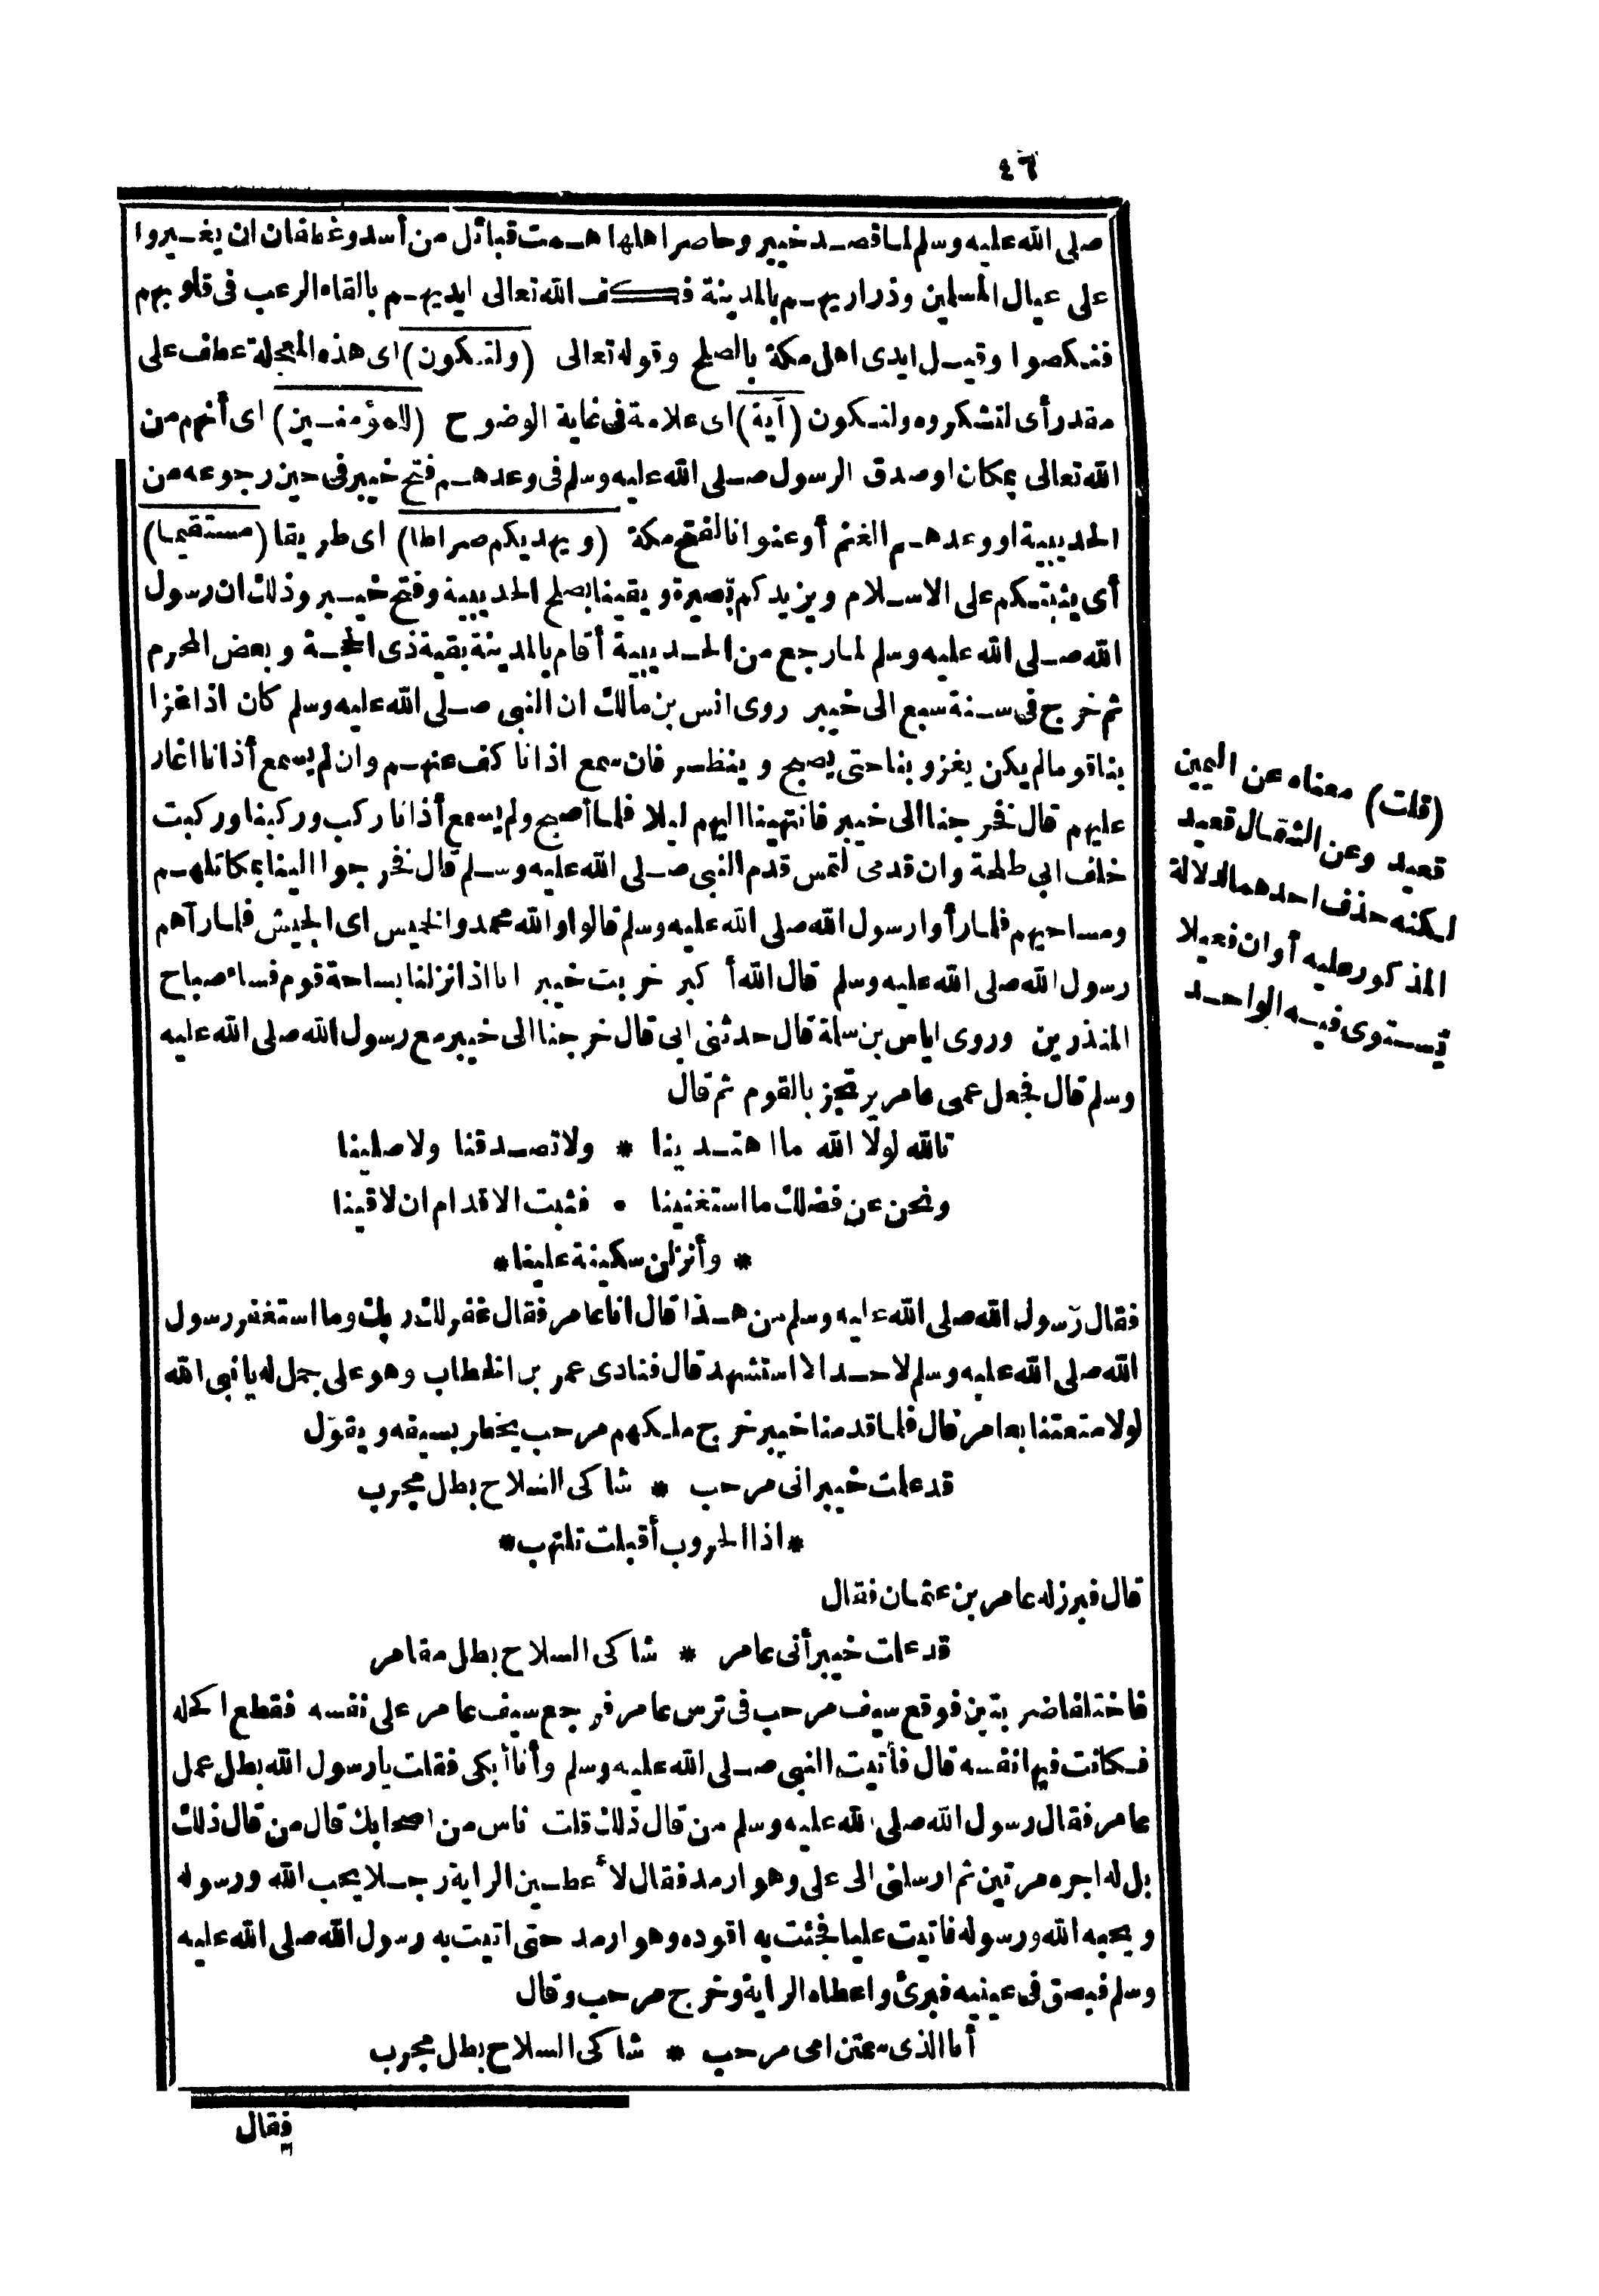 ٤٦
صلى الله عليه وسلم لما قصد خيبر وحاصر اهلها همت قبائل من أسد وغطفان ان يغيروا
على عيال المسلمين وذراريهم بالمدينة فكف الله تعالى ايديهم بالقاء الرعب فى قلوبهم
فنكصوا وقيل ايدى اهل مكة بالصلح وقوله تعالى (ولتكون) اى هذه المعجلة عطف على
مقدر أى لتشكروه ولتكون (آية) اى علامة فى غاية الوضوح (للمؤمنين) اى أنهم من
الله تعالى بمكان اوصدق الرسول صلى الله عليه وسلم فى وعدهم فتح خيبر فى حين رجوعه من
الحديبية او وعدهم الغنم أوعنوانا لفتح مكة (ويهديكم صراطا) اى طريقا (مستقيما)
أى يثبتكم على الاسلام ويزيدكم بصيرة ويقينا بصلح الحديبية وفتح خيبر وذلك ان رسول
الله صلى الله عليه وسلم لما رجع من الحديبية أقام بالمدينة بقية ذى الحجة وبعض المحرم
ثم خرج فى سنة سبع الى خيبر روى انس بن مالك ان النبى صلى الله عليه وسلم كان اذا غزا
بنا قوما لم يكن يغزو بنا حتى يصبح وينظر فان سمع اذانا كف عنهم وان لم يسمع أذانا اغار
عليهم قال فخرجنا الى خيبر فانتهينا اليهم ليلا فلما أصبح ولم يسمع أذانا ركب وركبنا وركبت
خلف ابى طلحة وان قدمى لتمس قدم النبى صلى الله عليه وسلم قال فخرجوا الينا بمكاتلهم
ومساحيهم فلما رأوا رسول الله صلى الله عليه وسلم قالوا والله محمد والخيس اى الجيش فلما رآهم
رسول الله صلى الله عليه وسلم قال الله أكبر خربت خيبر انا اذا نزلنا بساحة قوم فساء صباح
المنذرين وروى اياس بن سلمة قال حدثنى ابى قال خرجنا الى خيبر مع رسول الله صلى الله عليه
وسلم قال فجعل عمى عامر يرتجز بالقوم ثم قال
تالله لولا الله ما اهتدينا * ولا تصدقنا ولا صلينا
ونحن عن فضلك ما استغنينا • فثبت الاقدام ان لاقينا
* وأنزلن سكينة علينا *
فقال رسول الله صلى الله عليه وسلم من هذا قال انا عامر فقال غفر لك ربك وما استغفر رسول
الله صلى الله عليه وسلم لاحد الا استشهد قال فنادى عمر بن الخطاب وهو على جمل له يا نبى الله
لولا متعتنا بعامر قال فلما قدمنا خيبر خرج ملكهم مرحب يخطر بسيفه ويقول
قد علمت خيبر انى مرحب * شاكى السلاح بطل مجرب
* اذا الحروب أقبلت تلتهب *
قال فبرز له عامر بن عثمان فقال
قد علمت خيبر أنى عامر * شاكى السلاح بطل مقامر
فاختلفا ضربتين فوقع سيف مرحب فى ترس عامر فرجع سيف عامر على نفسه فقطع اكحله
فكانت فيها نفسه قال فأتيت النبى صلى الله عليه وسلم وأنا أبكى فقلت يا رسول الله بطل عمل
عامر فقال رسول الله صلى الله عليه وسلم من قال ذلك قلت ناس من اصحابك قال من قال ذلك
بل له اجره مرتين ثم ارسلنى الى على وهو ارمد فقال لأعطين الراية رجلا يحب الله ورسوله
ويحبه الله ورسوله فاتيت عليا فجئت به اقوده وهو ارمد حتى اتيت به رسول الله صلى الله عليه
وسلم فبصق فى عينيه فبرئ واعطاه الراية وخرج مرحب وقال
أنا الذى سمتن امى مرحب * شاكى السلاح بطل مجرب
فقال
(قلت) معناه عن اليمين
قعيد وعن الشمال قعيد
لكنه حذف احدهما لدلالة
المذكور عليه أو ان فعيلا
يستوى فيه الواحد